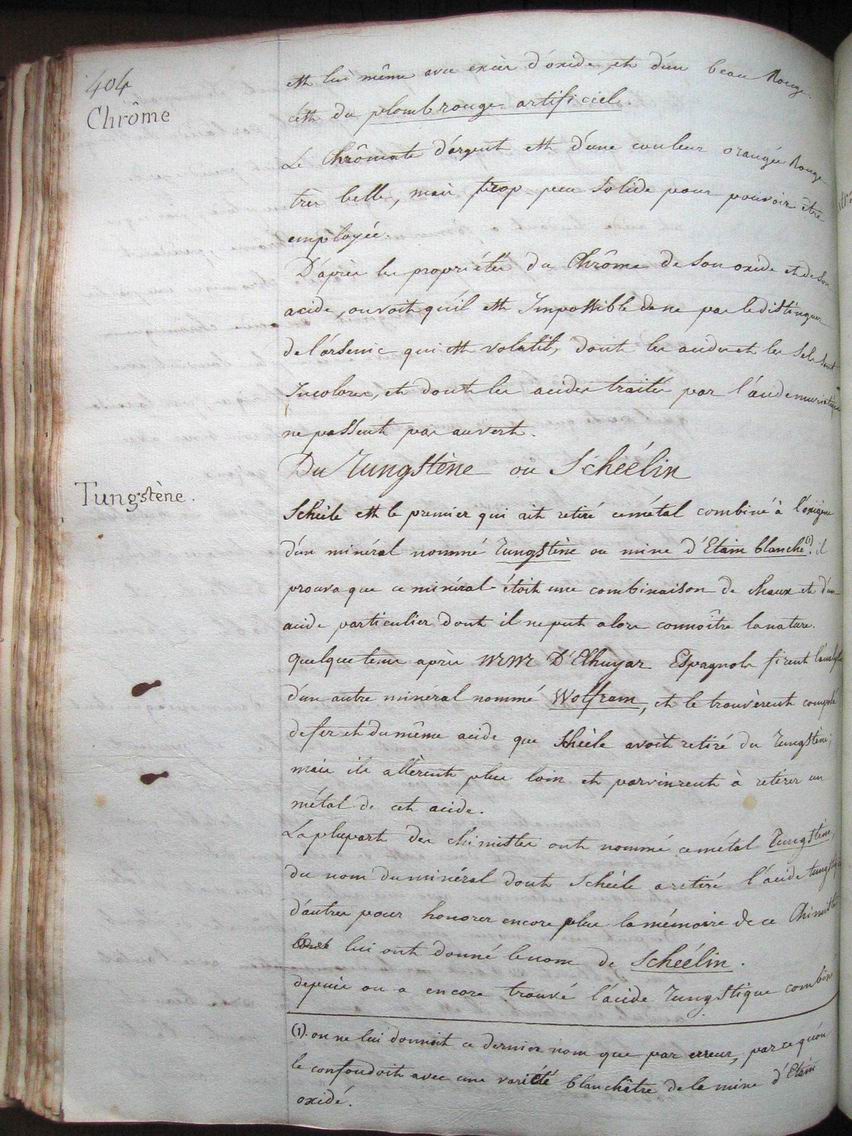 404
Chrôme
est lui même avec excès d'oxide, et d'un beau Rouge.
c'est du plomb rouge artificiel.
Le Chrômate d'argent est d'une couleur orangée Rouge
tres belle, mais trop peu solide pour pouvoir etre
employée.
D'après les propriétés du Chrôme de son oxide et de son
acide, on voit qu'il est Impossible de ne pas le distinguer
de l'arsenic qui est volatil, dont les acides et les Sels sont
Incolores, et dont les acides traités par l'acide muriatique
ne passent pas au vert.
Du Tungstène ou Schéélin
Tungstène.
Schéele est le premier qui ait retiré ce métal combiné à l'oxigène
d'un minéral nommé Tungstène ou mine d'Etain blanche(1). il
prouva que ce minéral étoit une combinaison de chaux et d'un
acide particulier dont il ne put alors connoître la nature.
quelque tems après MrMr D'Elhuyar Espagnols firent l'analyse
d'un autre minéral nommé Wolfram, et le trouvèrent composé
de fer et du même acide que Schéele avoit retiré du Tungstène;
mais ils allèrent plus loin et parvinrent à retirer un
métal de cet acide.
La plupart des chimistes ont nommé ce métal Tungstène,
du nom du minéral dont Schéele a retiré l'acide tungstique
d'autres pour honorer encore plus la mémoire de ce Chimiste
lui ont donné le nom de Schéélin.
depuis on a encore trouvé l'acide Tungstique combiné
(1). on ne lui donnoit ce dernier nom que par erreur, parce qu'on
le confondoit avec une variété blanchâtre de la mine d'Etain
oxidé.